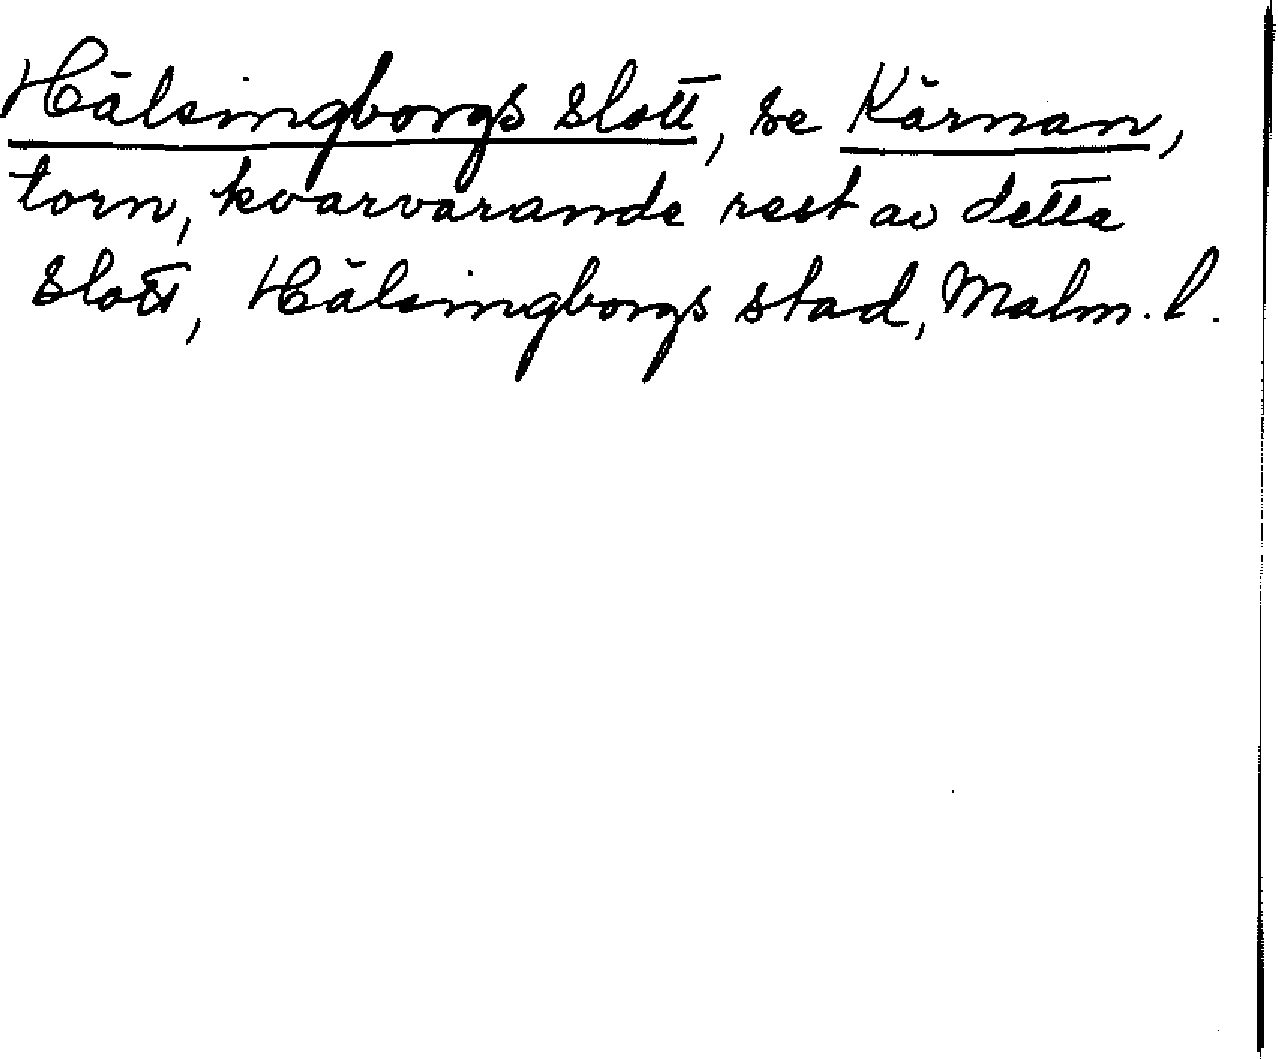 Hälsingborgs slott, se Kärnan,
torn, kvarvarande rest av detta
slott, Hälsingborgs stad, Malm. l.